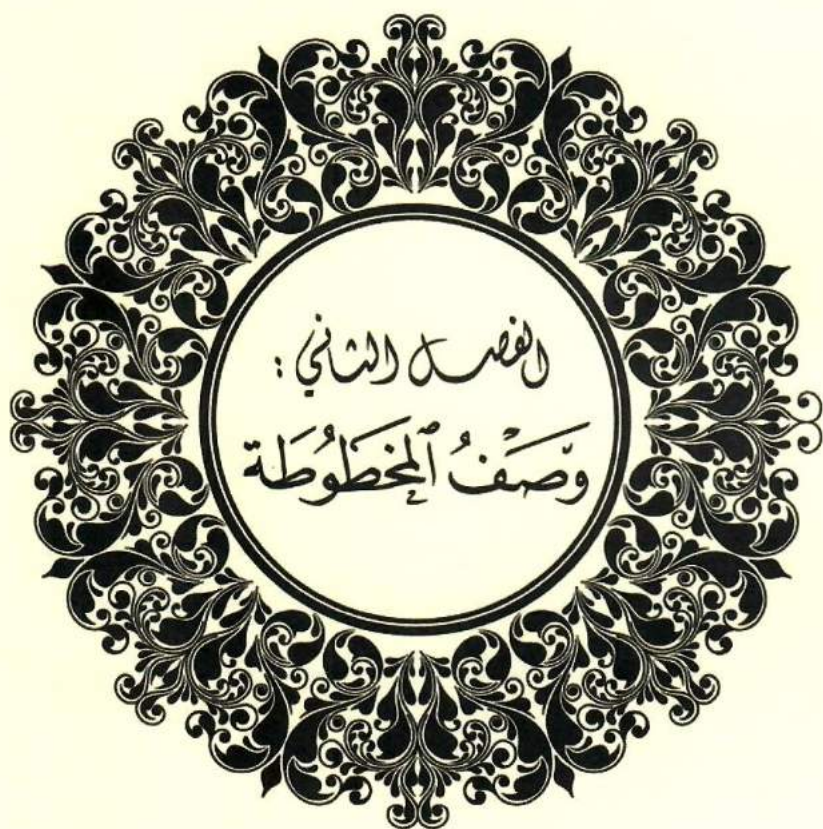 الفصل الثاني :
وَصْفُ ٱلمَخطُوطَة